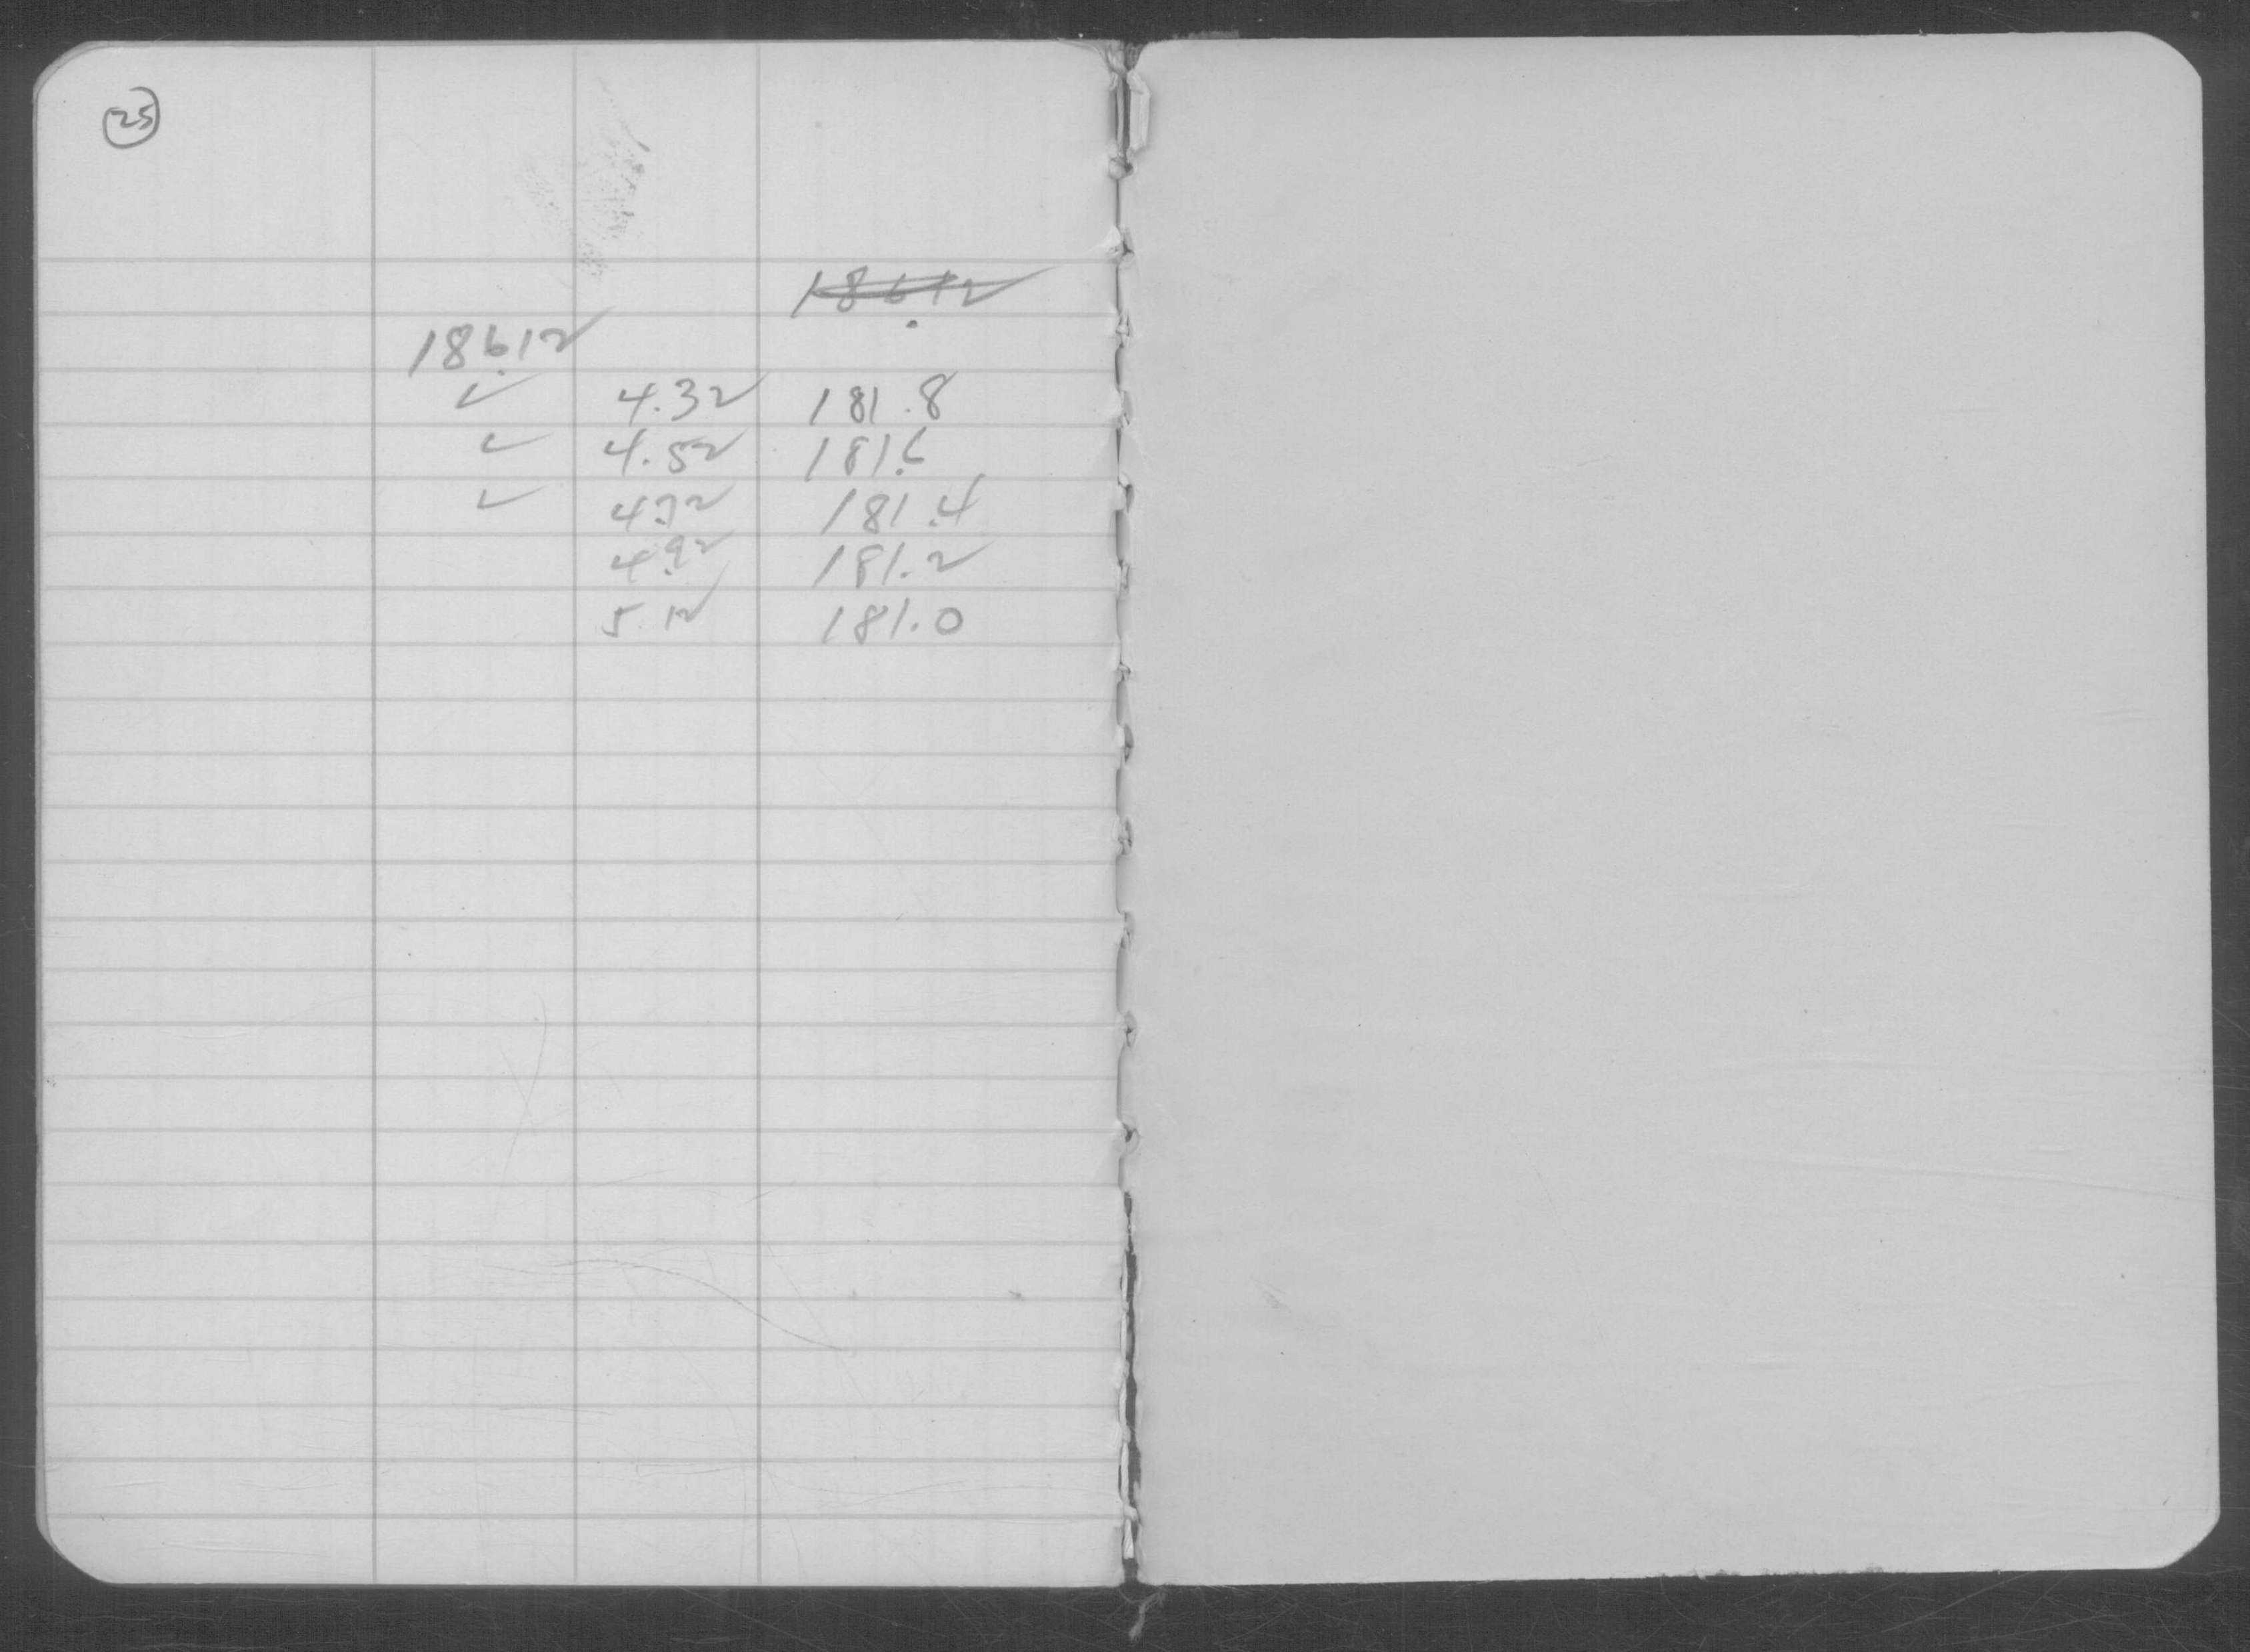 25
186.12
186.12
✓ 4.32 181.8
✓ 4.52 181.6
✓ 4.72 181.4
4.92 181.2
5.12 181.0